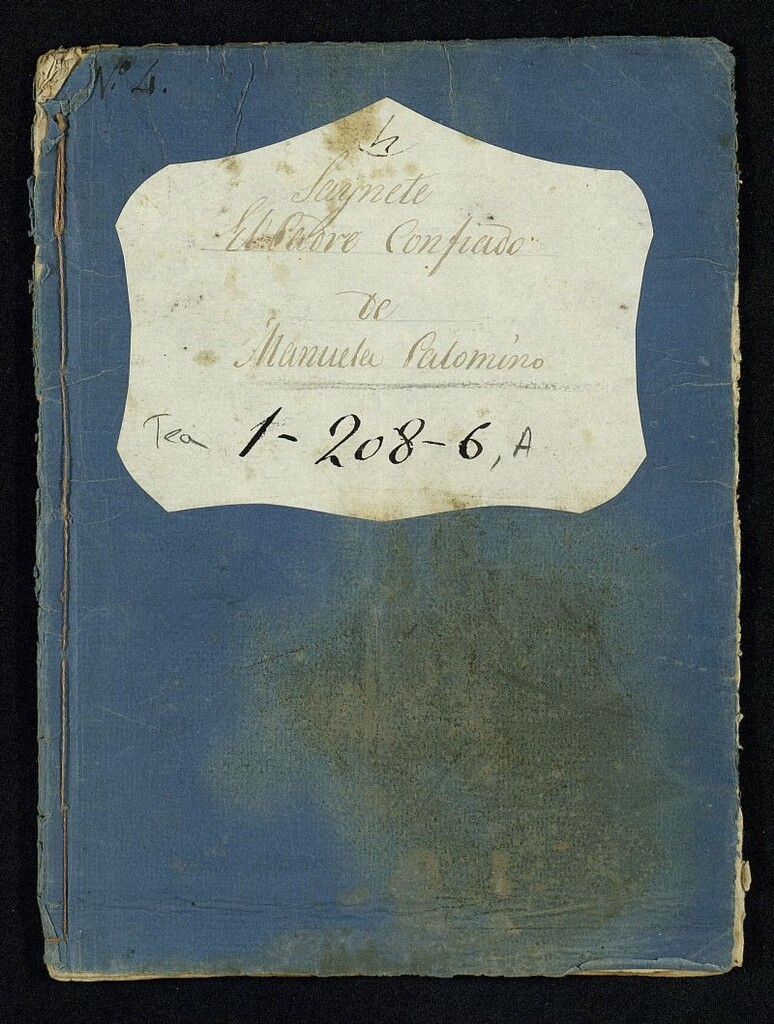 N.º 4.
h
Saynete
El Padre Confiado
de
Manuela Palomino
Tea 1-208-6, A